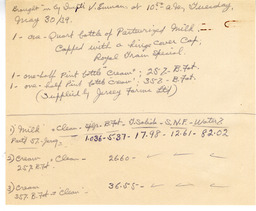 Bought in by
at 10:00 a.m., Thursday,
May 30/49.
1 - one-Quart bottle of Pasteurized Milk
Capped with a large cover Cap,
Special.
1 - one-half Pint bottle Cream; 25% B.Fat.
1 - one-half Pint bottle Cream; 35% B.Fat.
(Supplied by Jersey Farms Ltd)
1) Milk - Clean - B.Fat - T.Solids - S.N.F - Water %
Past. 1.036 - 5.37 - 17.98 - 12.61 - 82.02
2) Cream - Clean - 26.60 -
25% B.Fat
3) Cream 36.55 -
35% B.Fat - Clean -